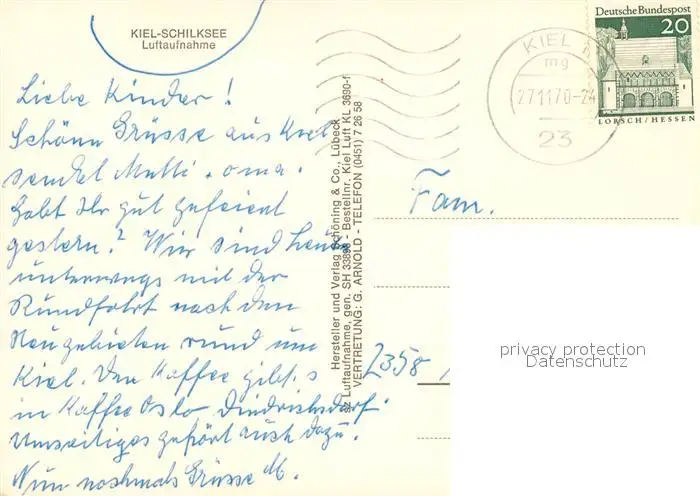 KIEL-SCHILKSEE
Luftaufnahme
Liebe Kinder!
Schöne Grüsse aus Kiel
sendet Mutti + Oma.
Habt Ihr gut gefeiert
gestern? Wir sind heute
unterwegs mit der
Rundfahrt nach den
Neugebieten rund um
Kiel. Den Kaffee gibt's
in Kaffee Oslo, Diedrichsdorf.
Umseitiges gehört auch dazu.
Nun nochmals Grüsse M.
Hersteller und Verlag Schöning & Co., Lübeck
Luftaufnahme, gen. SH 33898 - Bestellnr. Kiel Luft KL 3690-f
VERTRETUNG: G. ARNOLD - TELEFON (0451) 7 26 58
Deutsche Bundespost
20
LORSCH/HESSEN
KIEL
mg
27.11.70-24
23
Fam.
2358
privacy protection
Datenschutz